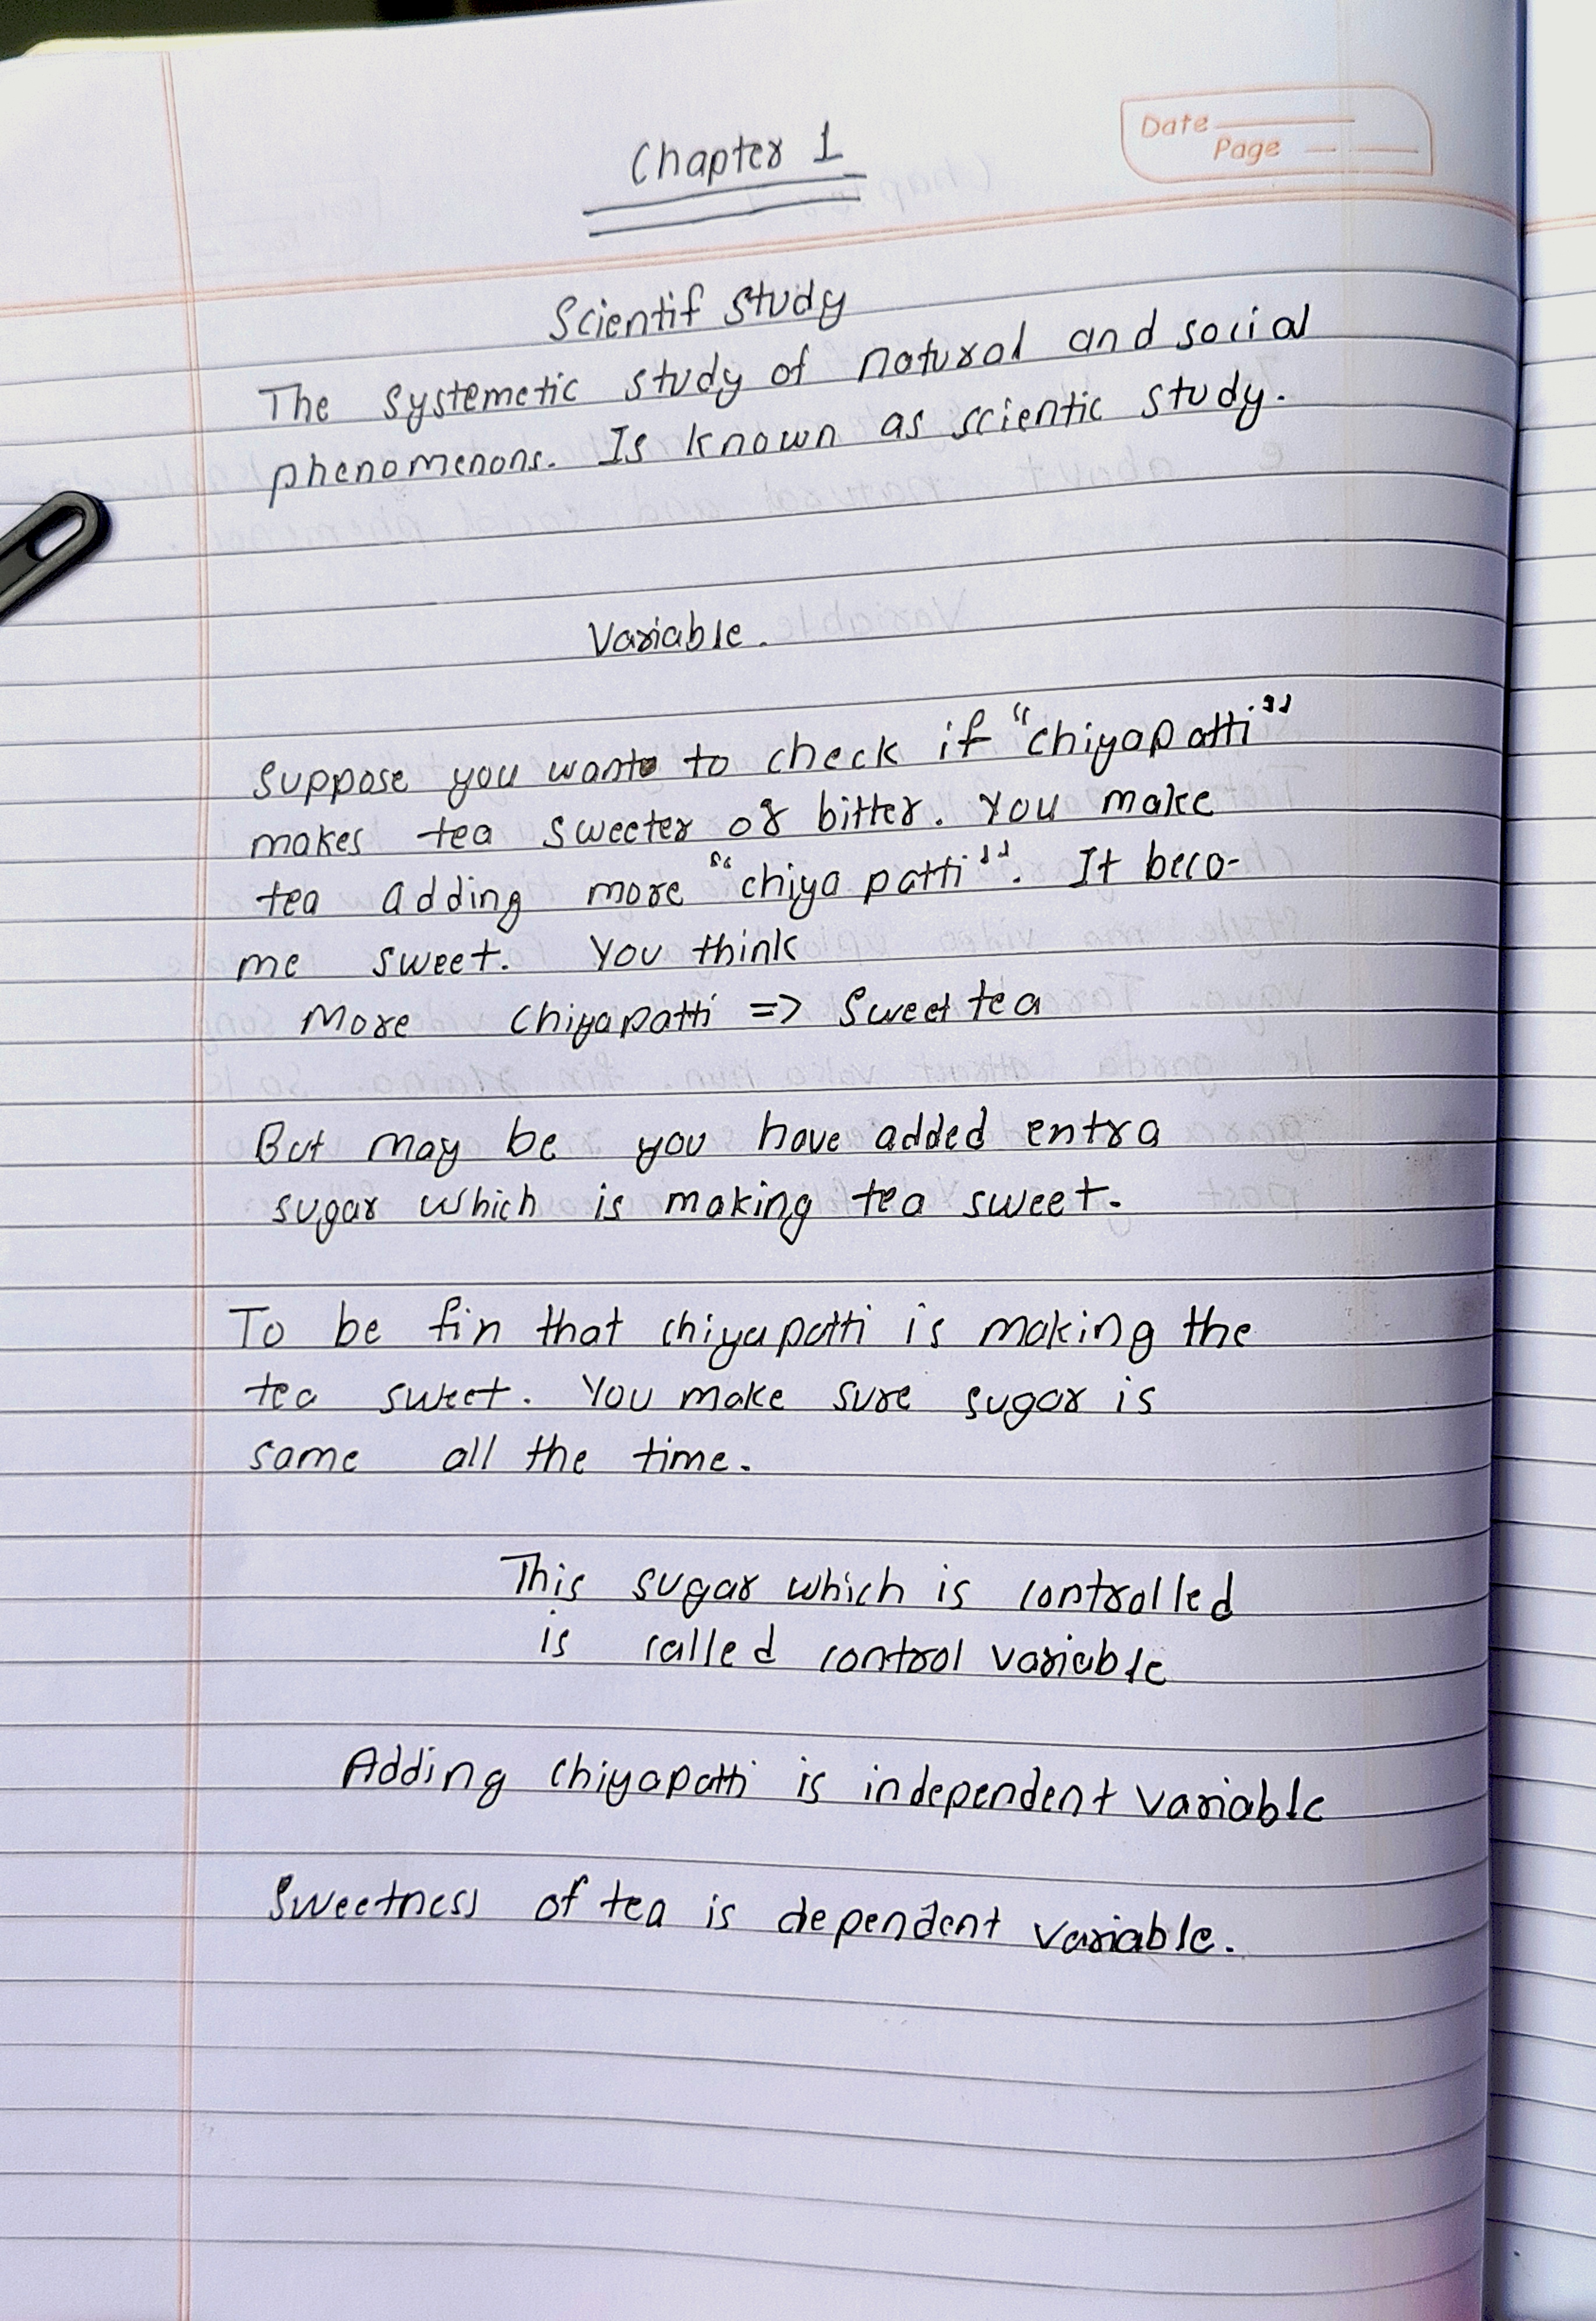 Date
Page
Chapter 1
Scientif Study
The systemetic study of natural and social
phenomenons. Is known as scientic study.
Variable.
Suppose you want to check if "chiyapatti"
makes tea sweeter or bitter. You make
tea adding more "chiya patti". It beco-
me sweet. You think
More chiyapatti => Sweet tea
But may be you have added entra
sugar which is making tea sweet.
To be fin that chiyapatti is making the
tea sweet. You make sure sugar is
same all the time.
This sugar which is controlled
is called control variable
Adding chiyapatti is independent variable
Sweetness of tea is dependent variable.